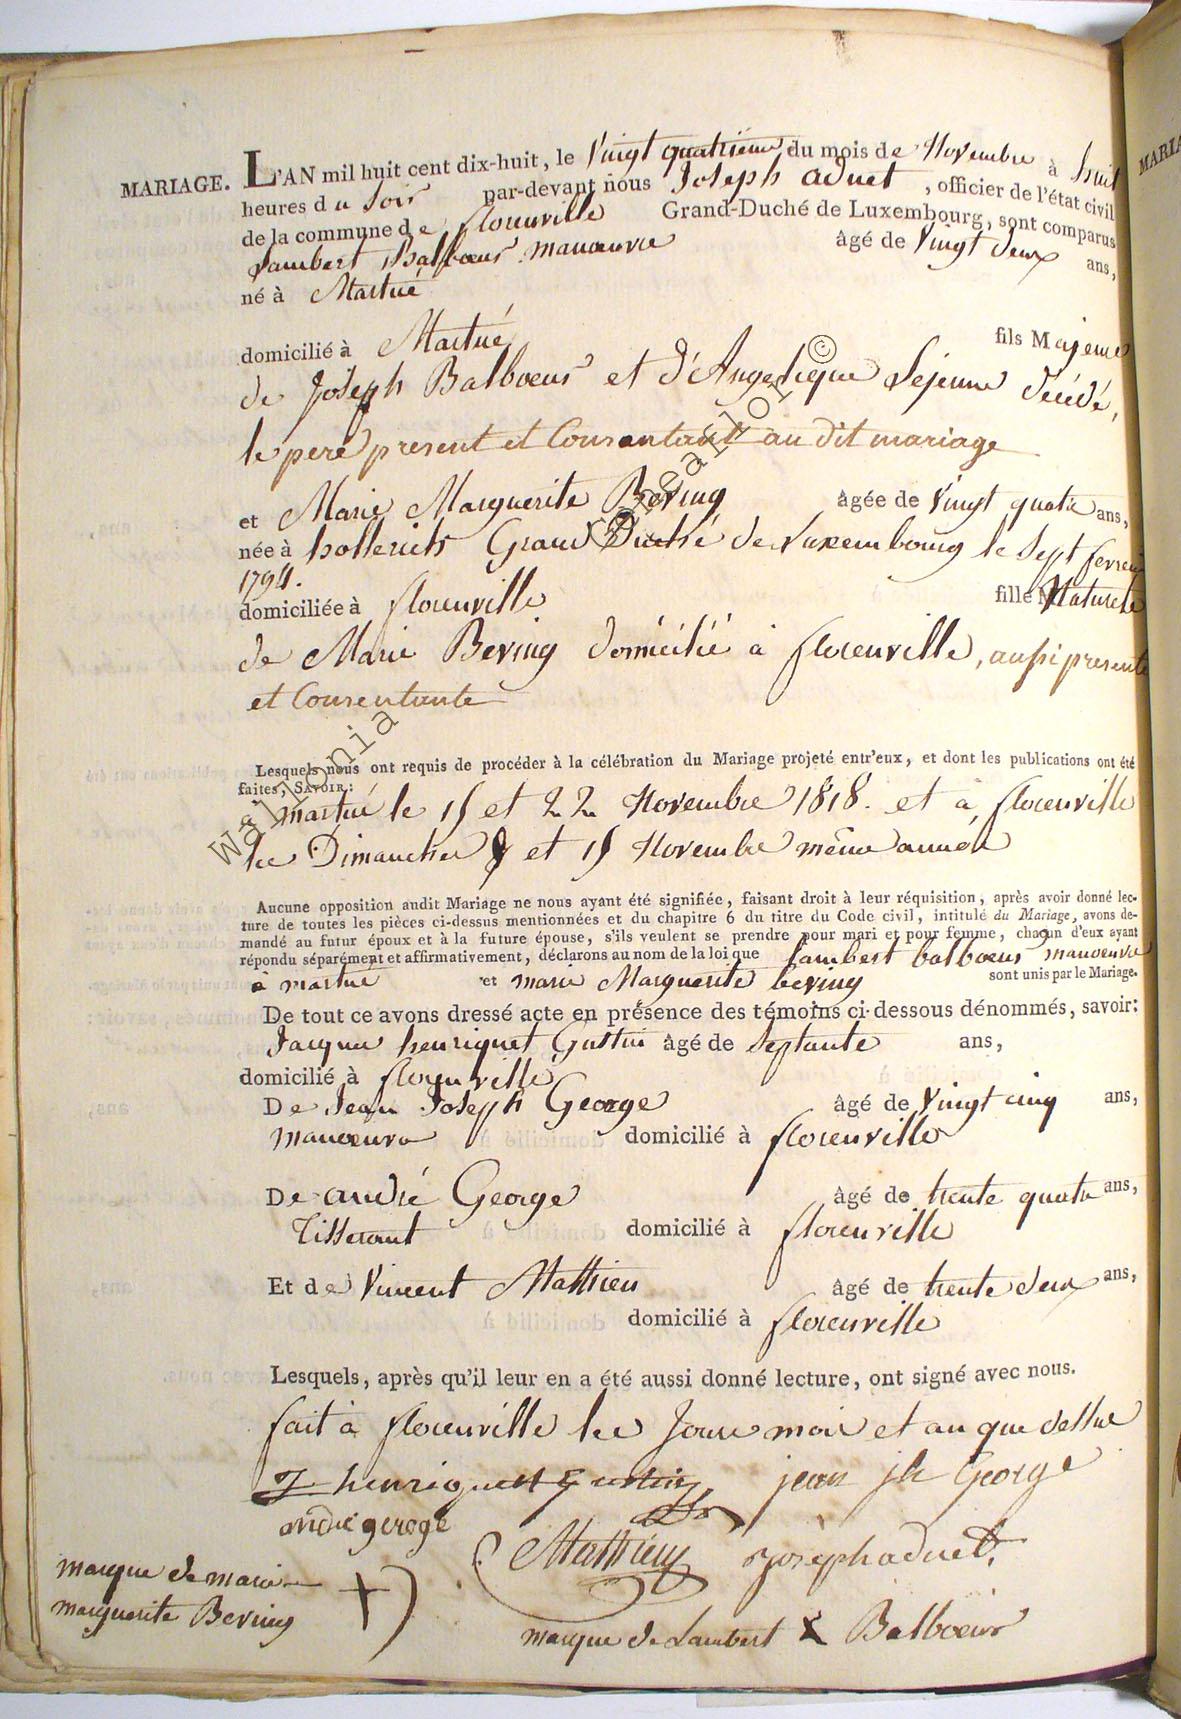 MARIAGE. L'AN mil huit cent dix-huit, le Vingt quatrieme du mois de Novembre à huit
heures du Soir par-devant nous Joseph aduet, officier de l'état civil
de la commune de florenville Grand-Duché de Luxembourg, sont comparus
Lambert Balboeur manoeuvre âgé de Vingt deux ans,
né à Martué
domicilié à Martué fils Majeur
de Joseph Balboeur et d'Angelique Lejeune décédé,
le pere present et Consentant au dit mariage
et Marie Marguerite Beving âgée de Vingt quatre ans,
née à hollerich Grand Duché de Luxembourg le sept fevrier
1794.
domiciliée à florenville fille Naturele
de Marie Beving domicilié à florenville, aussi presente
et Consentante
Lesquels nous ont requis de procéder à la célébration du Mariage projeté entr'eux, et dont les publications ont été
faites, SAVOIR:
à martué le 15 et 22 Novembre 1818. et à florenville
les Dimanches 8 et 15 Novembre même année
Aucune opposition audit Mariage ne nous ayant été signifiée, faisant droit à leur réquisition, après avoir donné lec-
ture de toutes les pièces ci-dessus mentionnées et du chapitre 6 du titre du Code civil, intitulé du Mariage, avons de-
mandé au futur époux et à la future épouse, s'ils veulent se prendre pour mari et pour femme, chacun d'eux ayant
répondu séparément et affirmativement, déclarons au nom de la loi que Lambert balboeur manoeuvre
à martué et marie Marguerite beving sont unis par le Mariage.
De tout ce avons dressé acte en présence des témoins ci-dessous dénommés, savoir:
Jacques henriquet Gustin âgé de Septante ans,
domicilié à florenville
De Jean Joseph George âgé de Vingt cinq ans,
manoeuvre domicilié à florenville
De andré George âgé de trente quatre ans,
Tisserant domicilié à florenville
Et de Vincent Mathieu âgé de trente deux ans,
domicilié à florenville
Lesquels, après qu'il leur en a été aussi donné lecture, ont signé avec nous.
fait à florenville les Jour mois et an que dessus
J henriquet Gustin jean jh George
andré gerege Mathieu Joseph aduet
marque de marie + marguerite Beving
marque de Lambert X Balboeur
Wallonia ©
MARIA